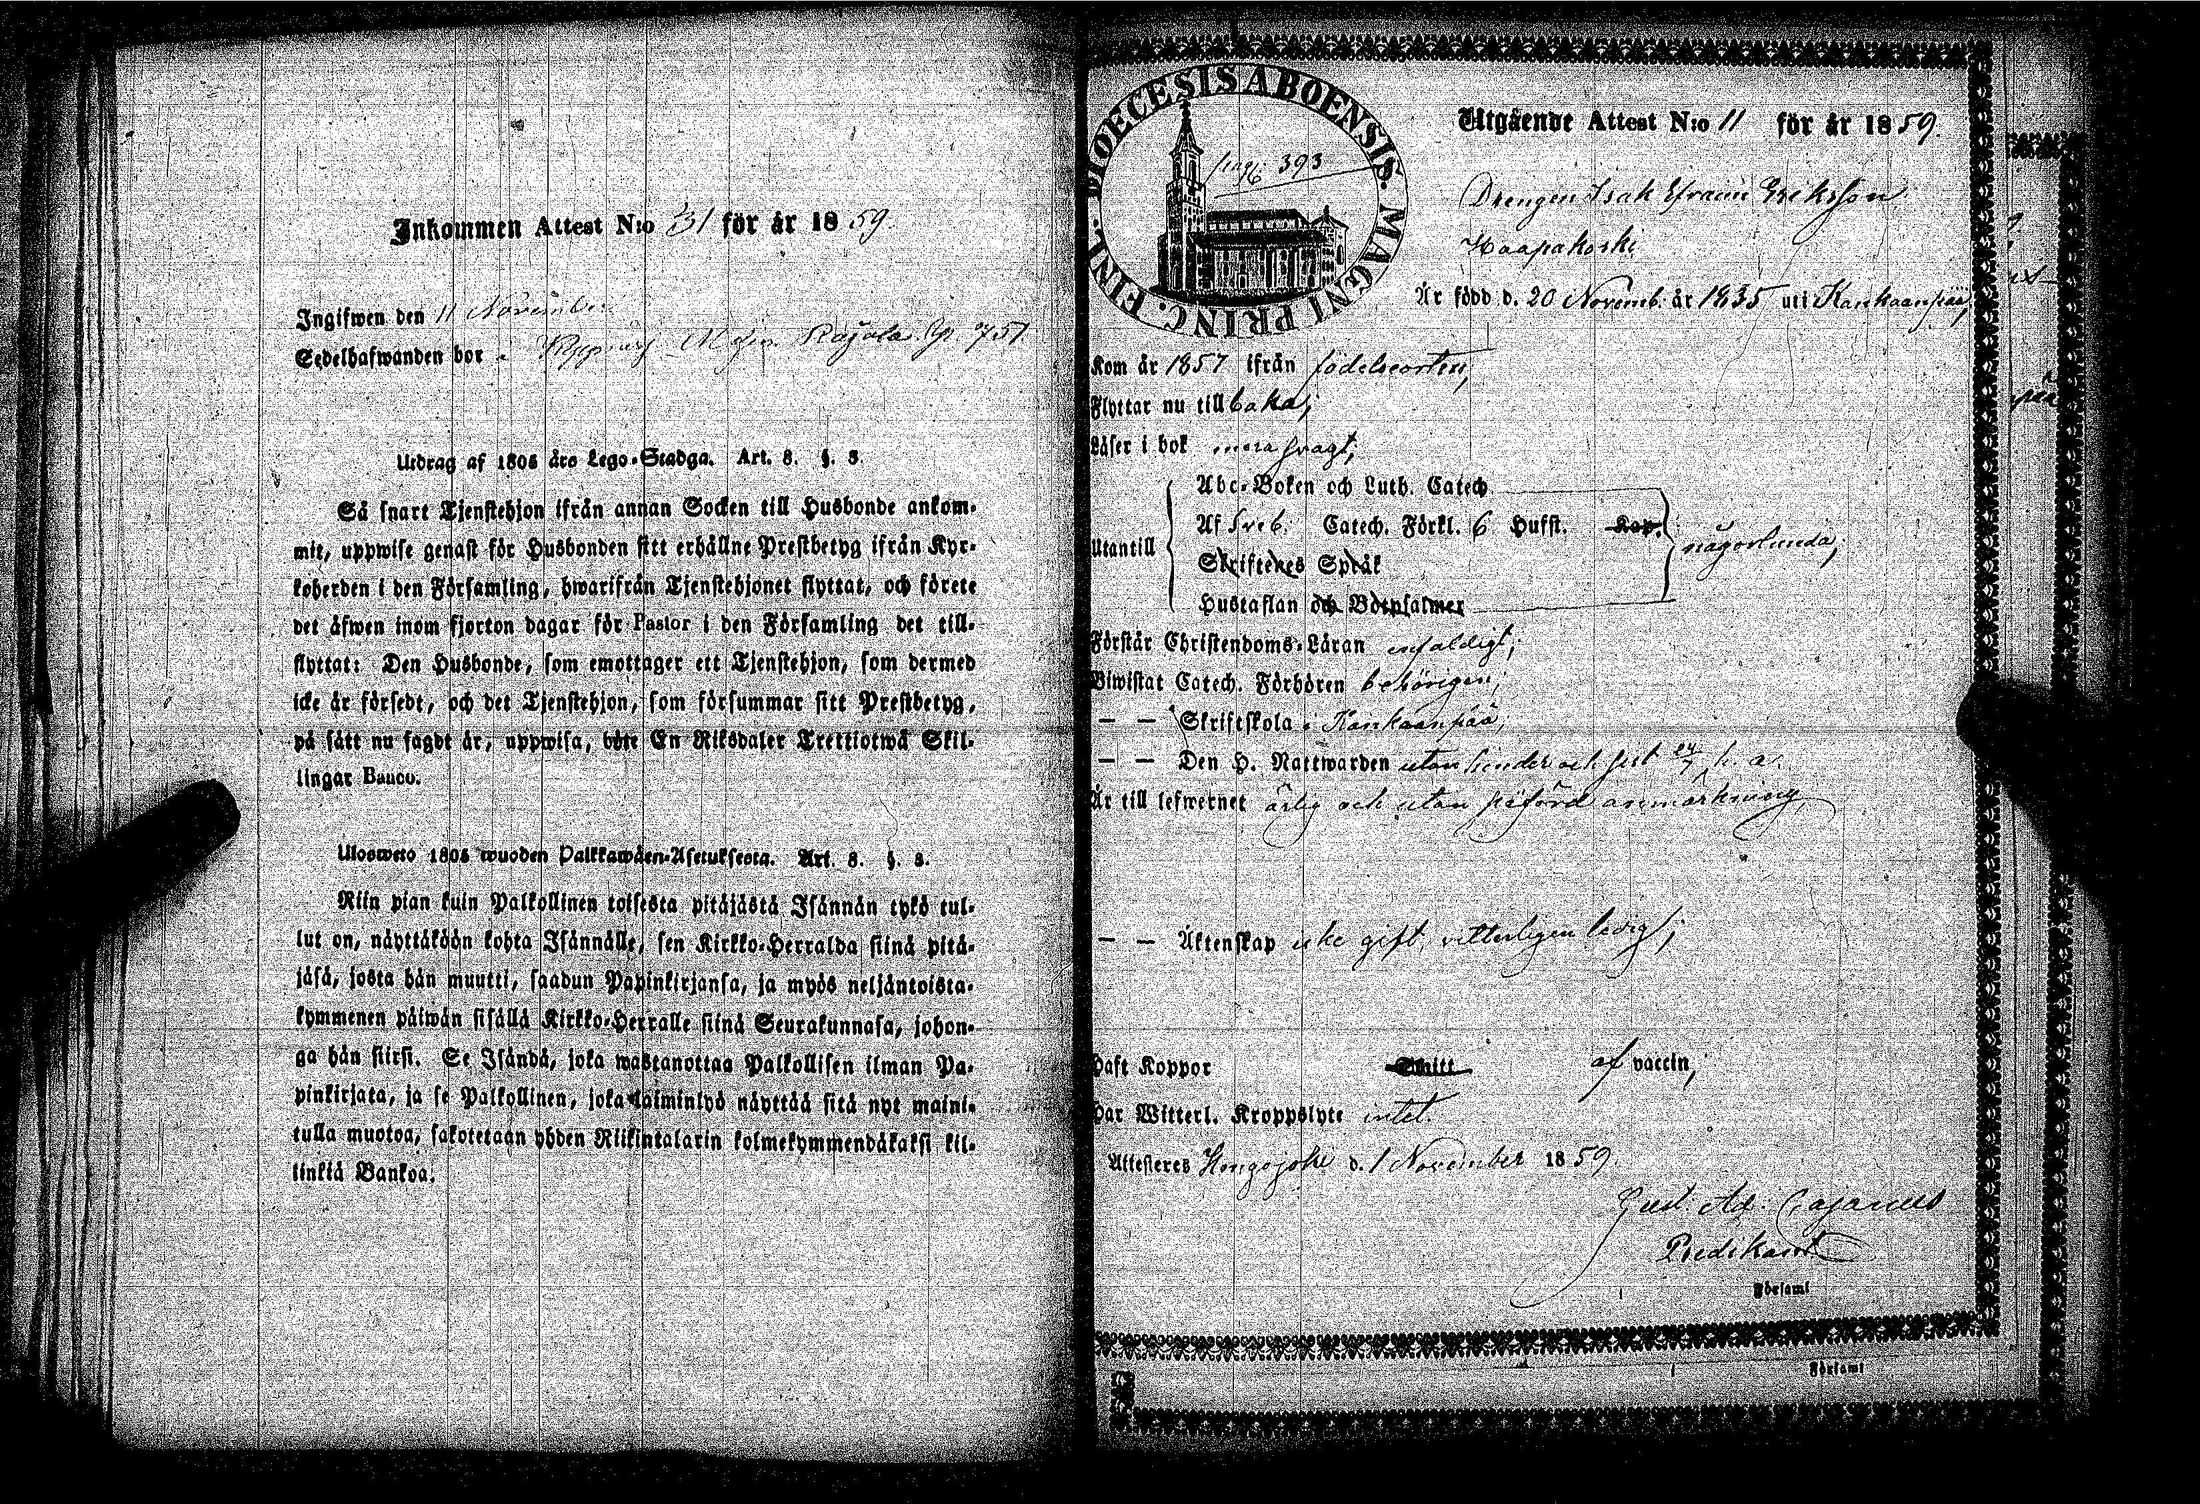 Inkommen Attest N:o 31 för år 1859.
Ingifwen den 11 November
Sedelhafwanden bor
Rajala
Utdrag af 1805 års Lego-Stadga. Art. 8. §. 3.
Så snart Tjenstehjon ifrån annan Socken till Husbonde ankom-
mit, uppwise genast för Husbonden sitt erhållne Prestbetyg ifrån Kyr-
koherden i den Församling, hwarifrån Tjenstehjonet flyttat, och förete
det äfwen inom fjorton dagar för Pastor i den Församling det till-
flyttat: Den Husbonde, som emottager ett Tjenstehjon, som dermed
icke är försedt, och det Tjenstehjon, som försummar sitt Prestbetyg,
på sätt nu sagdt är, uppwisa, böte En Riksdaler Trettiotwå Skil-
lingar Banco.
Ulosweto 1805 wuoden Palkkawäen-Asetuksesta. Art. 8. §. 3.
Niin pian kuin Palkollinen toisesta pitäjästä Isännän tykö tul-
lut on, näyttäköön kohta Isännälle, sen Kirkko-Herralda siinä pitä-
jäsä, josta hän muutti, saadun Papinkirjansa, ja myös neljäntoista-
kymmenen päiwän sisällä Kirkko-Herralle siinä Seurakunnasa, johon-
ga hän siirsi. Se Isändä, joka wastanottaa Palkollisen ilman Pa-
pinkirjata, ja se Palkollinen, joka laiminlyö näyttää sitä nyt maini-
tulla muotoa, sakotetaan yhden Riikintalarin kolmekymmendäkaksi kil-
linkiä Bankoa.
FINL. DIOECESIS ABOENSIS. MAGNI PRINC.
pag. 393
Utgående Attest N:o 11 för år 1859.
Drengen Isak Efraim Eriksson
Haapakoski
Är född d. 20 Novemb. år 1835 uti Kankaanpää,
Kom år 1857 ifrån födelseorten,
Flyttar nu tillbaka;
Läser i bok mera svagt;
Abc-Boken och Luth. Catech.
Utantill
Af Sveb. Catech. Förkl. 6 Hufst. Kap.
någorlunda;
Skriftenes Språk
Hustaflan och Botpsalmer
Förstår Christendoms-Läran enfaldigt;
Biwistat Catech. Förhören behörigen;
— — Skriftskola i Kankaanpää;
— — Den H. Nattwarden utan hinder och sist h. a.
Är till lefwernet ärlig och utan påförd anmärkning
— — Äktenskap icke gift, vitterligen ledig;
Haft Koppor Smitt. af vaccin,
Har Witterl. Kroppslyte intet.
Attesteras Hongojoki d. 1 November 1859.
Gust. Ad. Cajanus
Predikant
Församl
Församl